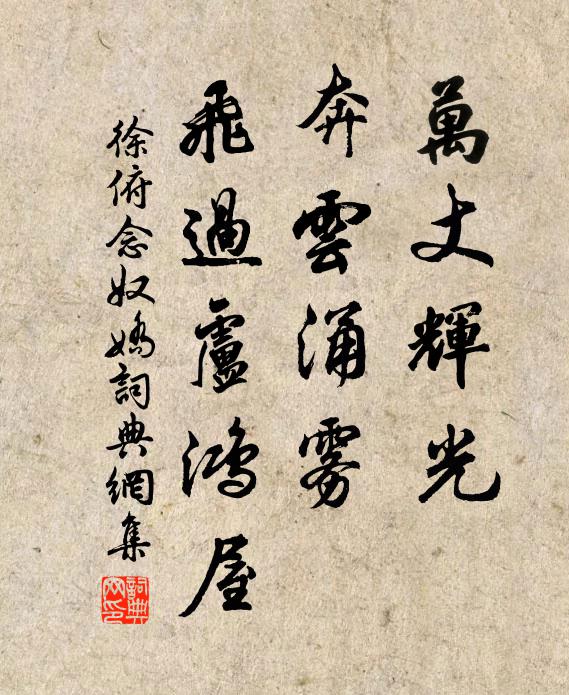 萬丈輝光
奔雲涌霧
飛過盧鴻屋
徐俯念奴嬌詞典網集
詞典網印